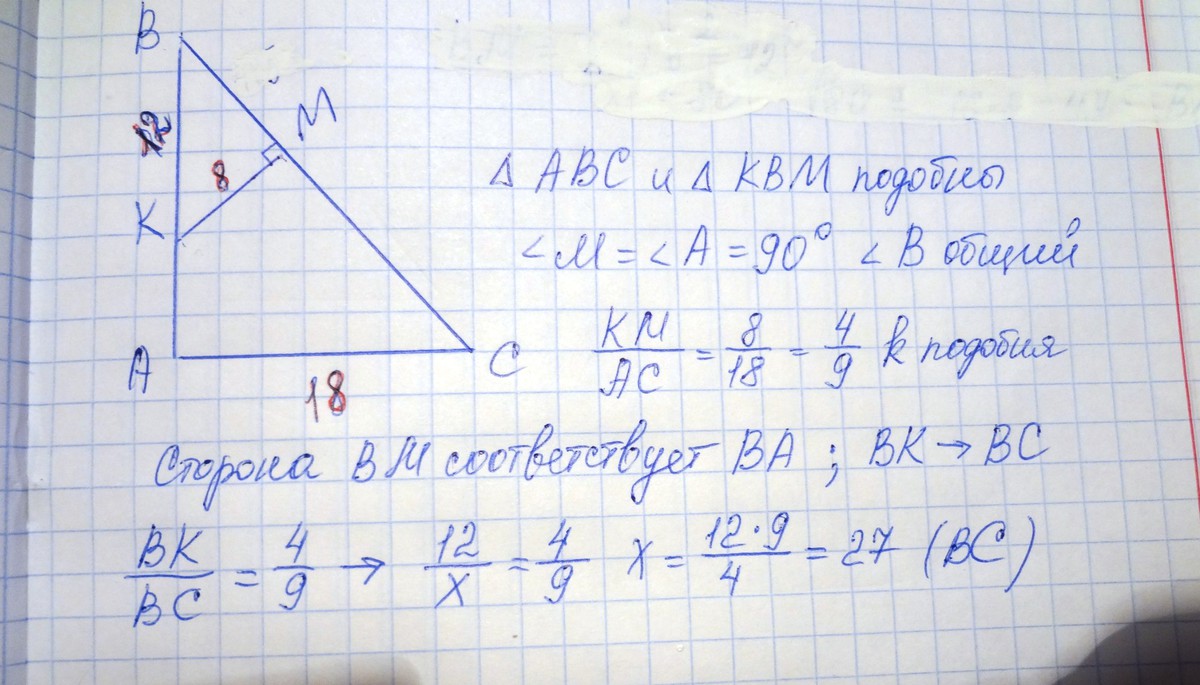 B
12
M
8
K
A
C
18
Δ ABC и Δ KBM подобны
∠M = ∠A = 90° ∠B общий
KM/AC = 8/18 = 4/9 k подобия
Сторона BM соответствует BA ; BK → BC
BK/BC = 4/9 → 12/x = 4/9 x = 12·9/4 = 27 (BC)